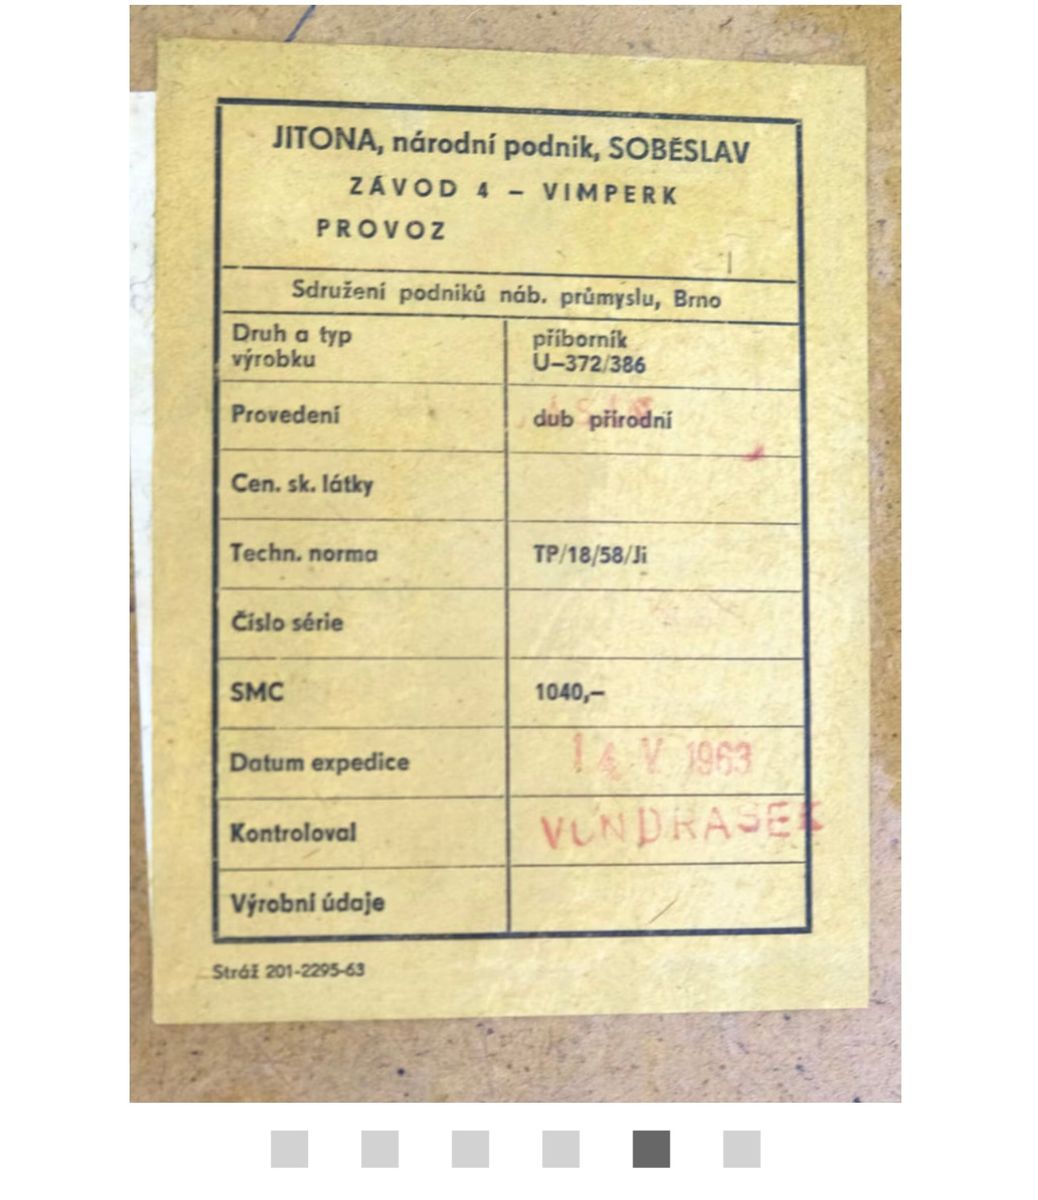 JITONA, národní podnik, SOBĚSLAV
ZÁVOD 4 – VIMPERK
PROVOZ
Sdružení podniků náb. průmyslu, Brno
Druh a typ výrobku příborník U–372/386
Provedení dub přírodní
Cen. sk. látky
Techn. norma TP/18/58/Ji
Číslo série
SMC 1040,–
Datum expedice 14 V 1963
Kontroloval
Výrobní údaje
Stráž 201-2295-63